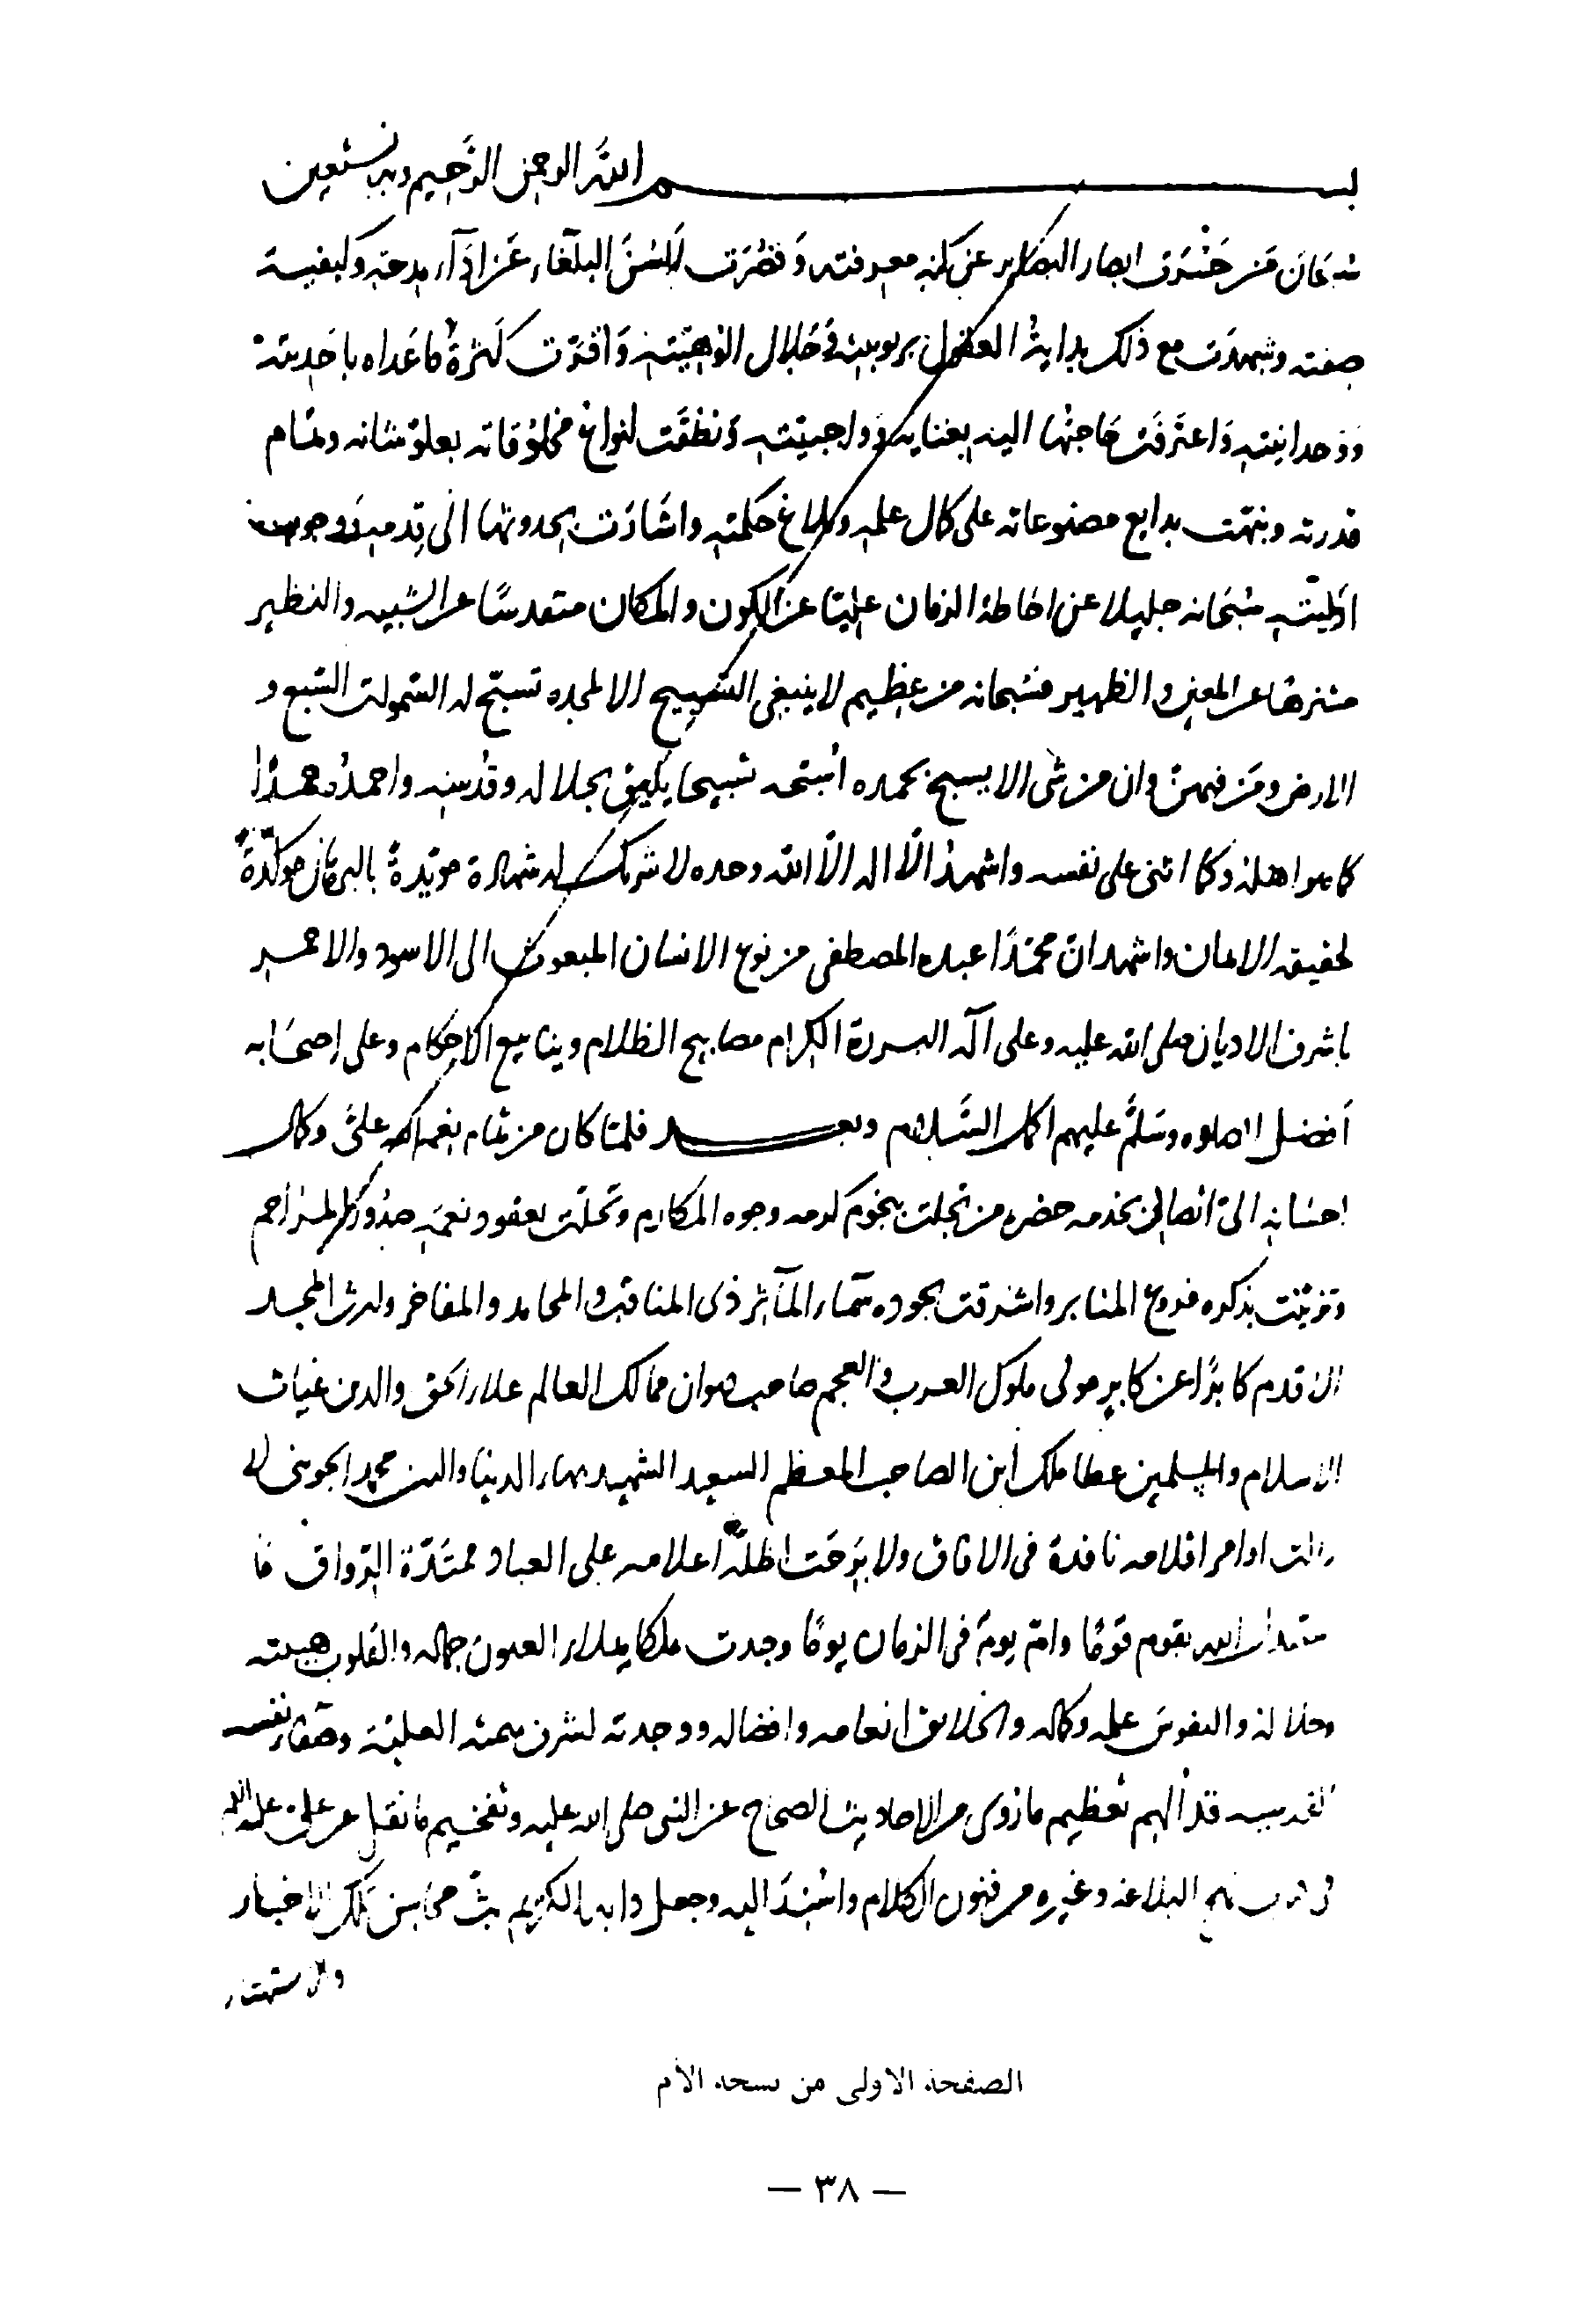 بسم الله الرحمن الرحيم وبه نستعين
سبحان من حسرت ابصار البصاير عن كنه معرفته وقصرت السن البلغاء عن اداء مدحته وكيفية
صفته وشهدت مع ذلك بداية العقول بربوبيته في جلال الوهيته واقرت كثرة ما عداه باحديته
ووحدانيته واعترفت حاجتها اليه بغنايه وواجبيته ونطقت انواع مخلوقاته بعلو شانه وتمام
قدرته ونبهت بدايع مصنوعاته على كمال علمه وبلاغ حكمته واشارت بحدوثها الى قدمه ووجوب
ازليته سبحانه جليلا عن احاطة الزمان عليا عن الكون والمكان متقدسا عن الشبيه والنظير
متنزها عن المعين والظهير فسبحانه من عظيم لا ينبغي التسبيح الا لمجده تسبح له السموات السبع و
الارض ومن فيهن وان من شى الا يسبح بحمده اسبحه تسبيحا يليق بجلاله وقدسه واحمده حمدا
كما هو اهله وكما اثنى على نفسه واشهد الا اله الا الله وحده لا شريك له شهادة مؤيدة بالبرهان موكدة
لحقيقه الايمان واشهد ان محمدا عبده المصطفى من نوع الانسان المبعوث الى الاسود والاحمر
باشرف الاديان صلى الله عليه وعلى آله البررة الكرام مصابيح الظلام وينابيع الاحكام وعلى اصحابه
افضل الصلوه وسلم عليهم اكمل السلام وبعد فلما كان من تمام نعم الله علي وكمال
احسانه الي اتصالي بخدمه حضره من تجلت بنجوم كرمه وجوه المكارم وتحلت بعقود نعمه صدور المراحم
وتزينت بذكره فروع المنابر واشرقت بجوده سماء المآثر ذى المناقب والمحامد والمفاخر وارث المجد
الاقدم كابرا عن كابر مولى ملوك العرب والعجم صاحب ديوان ممالك العالم علاء الحق والدين غياث
الاسلام والمسلمين عطا ملك ابن الصاحب المعظم السعيد الشهيد بهاء الدنيا والدين محمد الجويني لا
زالت اوامر اقلامه نافذة فى الافاق ولا برحت اظلة اعلامه على العباد ممتدة الرواق ما
بقوم قوما وام يوم فى الزمان يوما وجدت ملكا يملاء العيون جماله والقلوب هيبته
وجلاله والنفوس علمه وكماله والخلايق انعامه وافضاله ووجدته لشرف همته العلية وصفاء نفسه
القدسيه قد الهم تعظيم ما روى من الاحاديث الصحاح عن النبى صلى الله عليه وتفخيم ما نقل عن علي عليه السلام
فى كتاب نهج البلاغه وغيره من فنون الكلام واسند اليه وجعل دابه الكريم بث محاسن تلك الاخبار
والاشتهار
الصفحة الاولى من نسخة الأم
— ٣٨ —